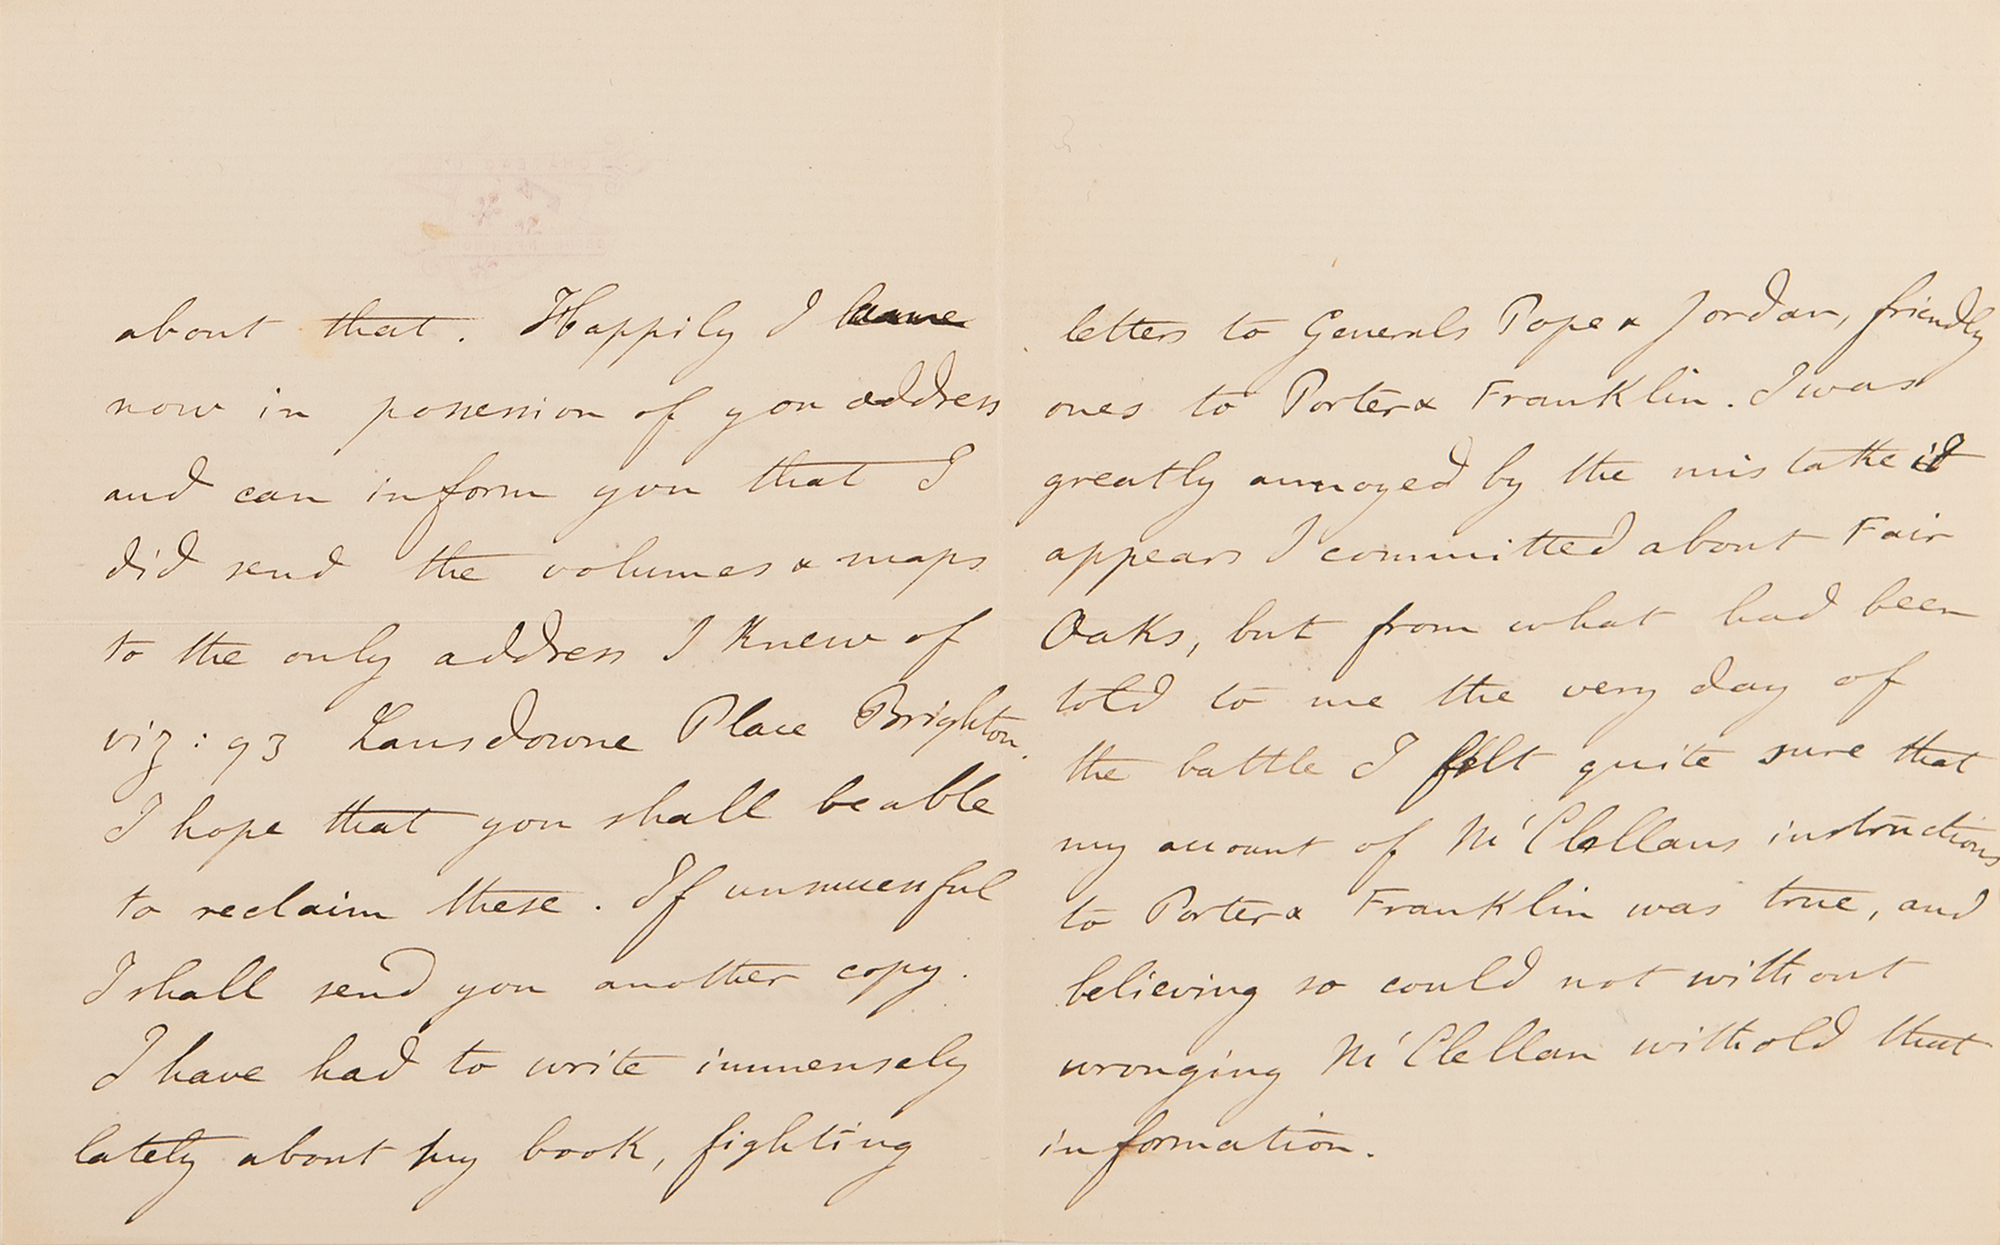 about that. Happily I
now in possession of you address
and can inform you that I
did send the volumes & maps
to the only address I knew of
viz: 93 Lansdowne Place Brighton.
I hope that you shall be able
to reclaim these. If unsuccessful
I shall send you another copy.
I have had to write immensely
lately about my book, fighting
letters to Generals Pope & Jordan, friendly
ones to Porter & Franklin. I was
greatly annoyed by the mistake it
appears I committed about Fair
Oaks, but from what had been
told to me the very day of
the battle I felt quite sure that
my account of M'Clellans instructions
to Porter & Franklin was true, and
believing so could not without
wronging M'Clellan withold that
information.